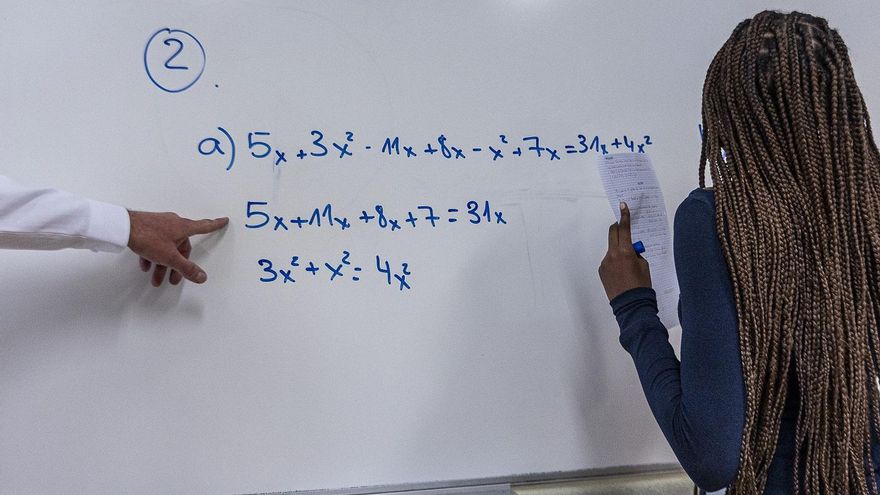 2
a) 5x+3x²-11x+8x-x²+7x=31x+4x²
5x+11x+8x+7=31x
3x²+x²=4x²